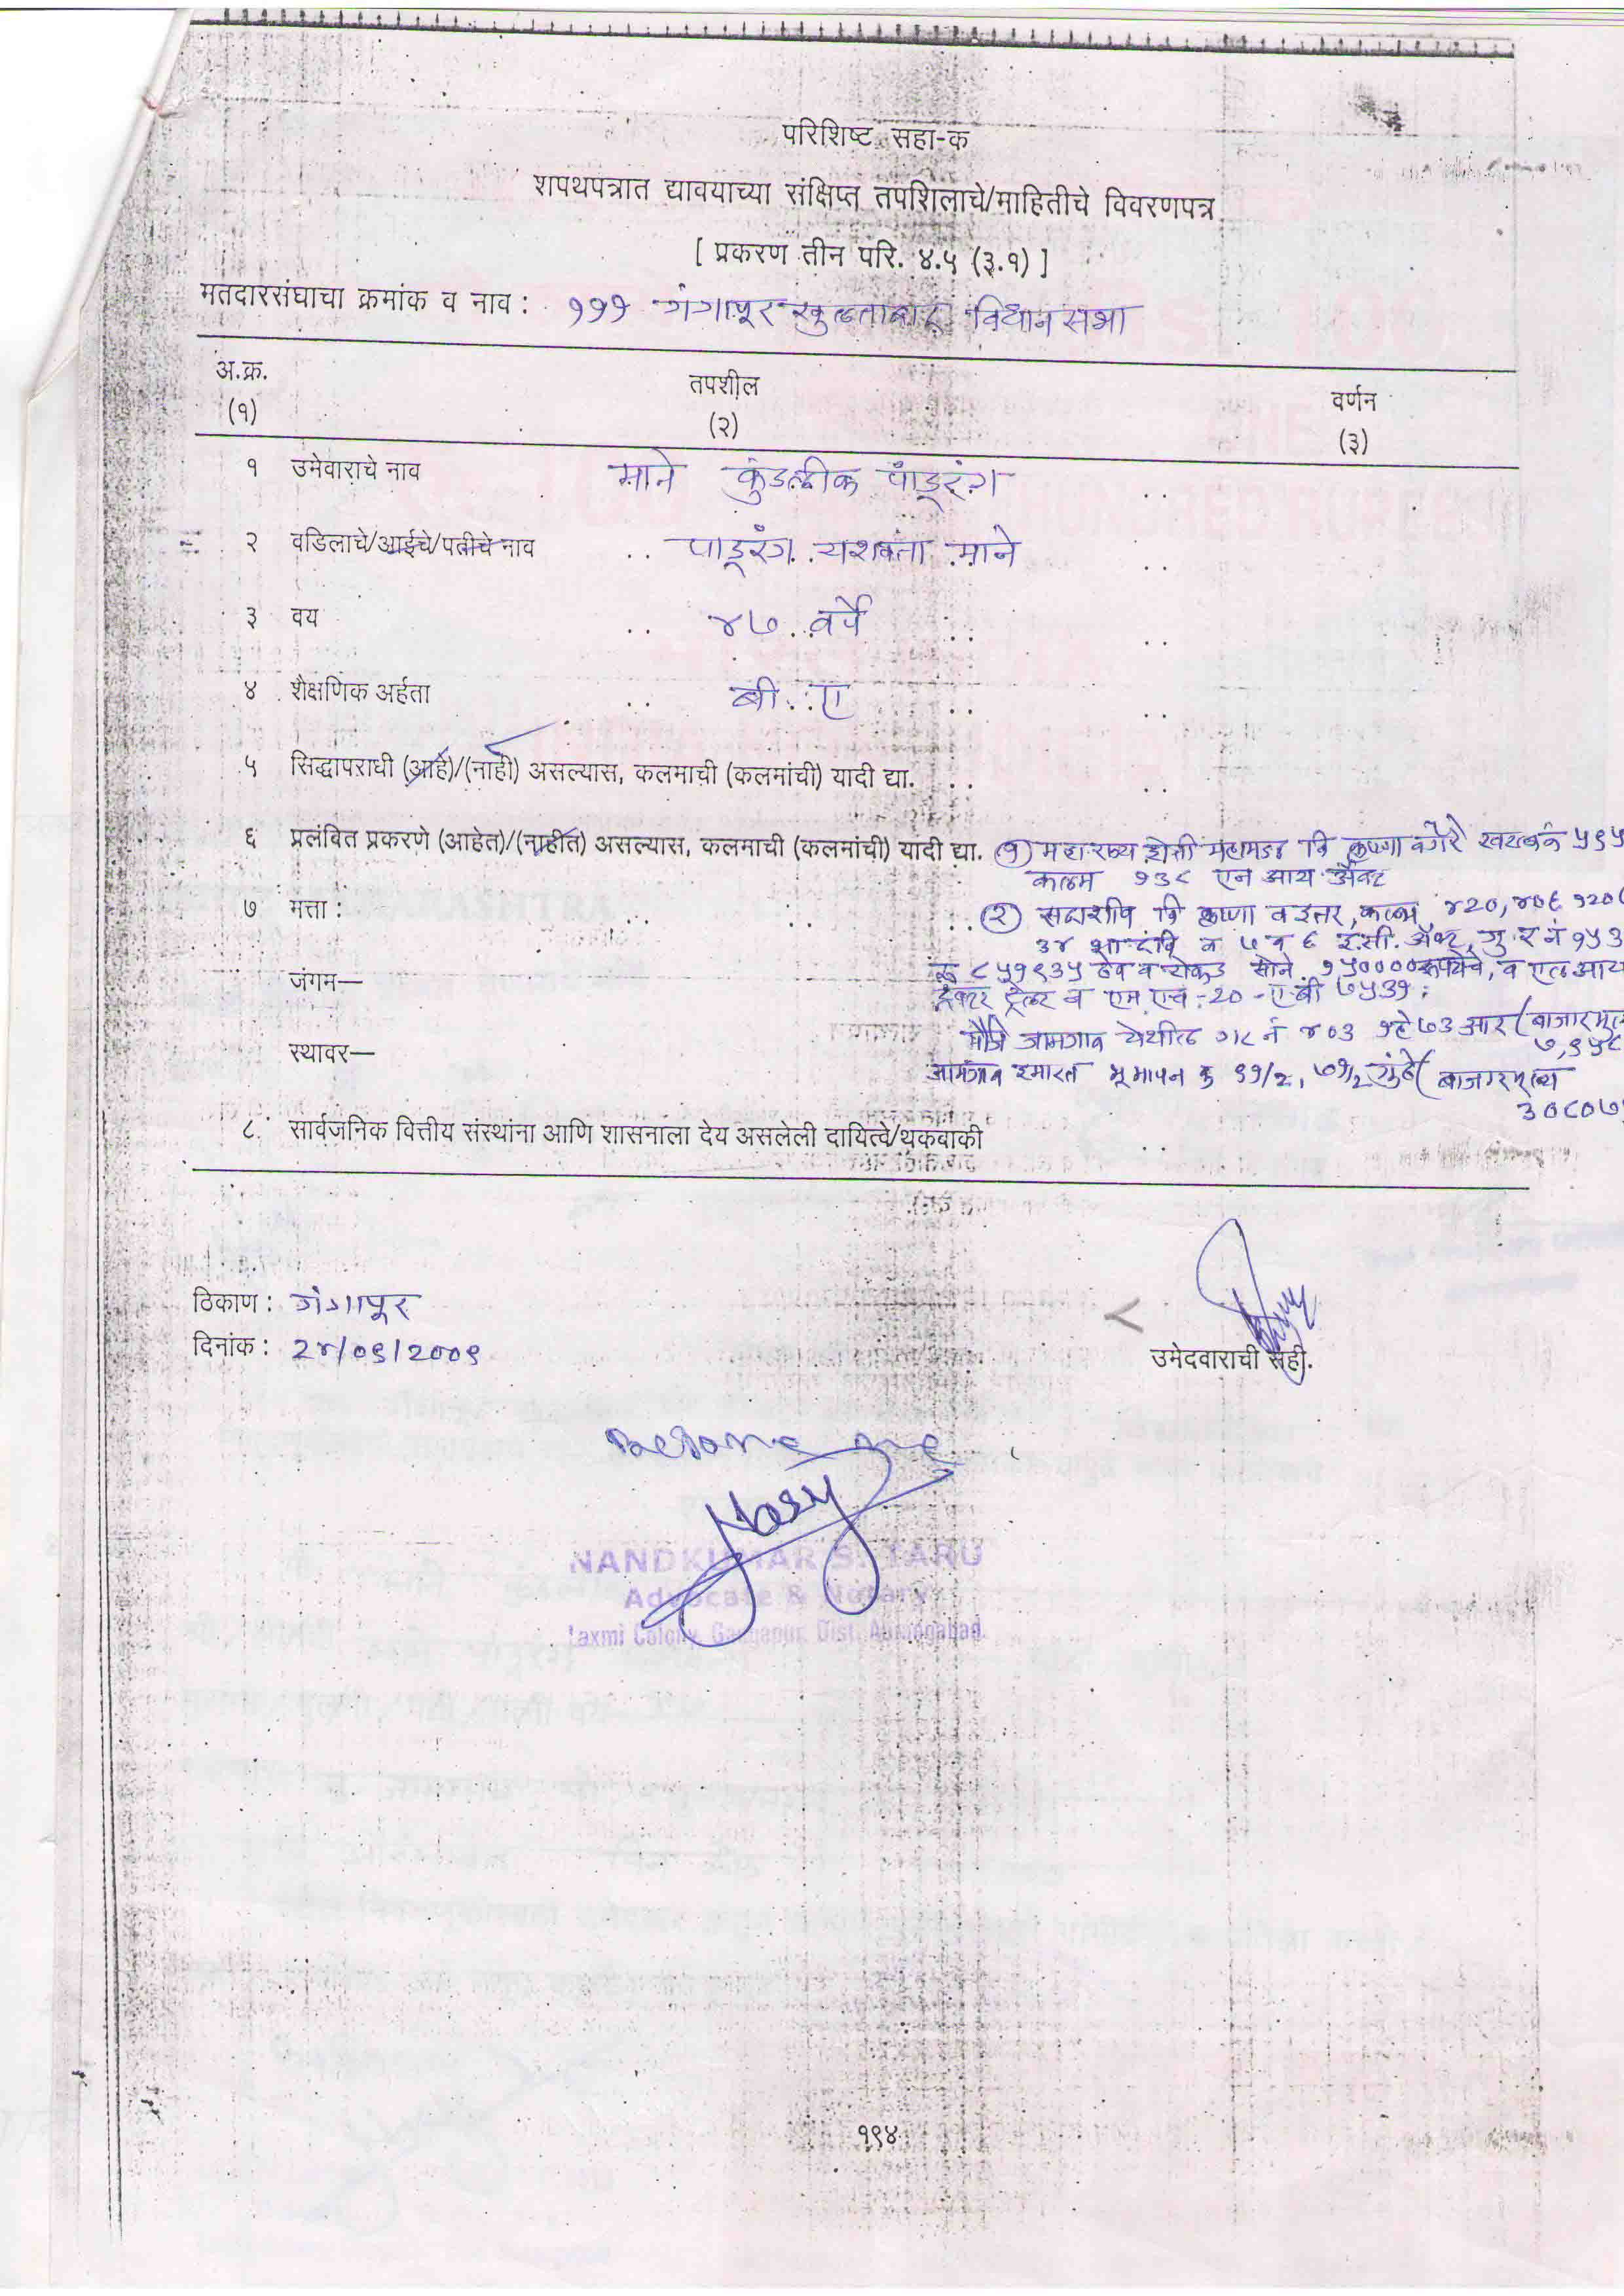 परिशिष्ट सहा-क
शपथपत्रात द्यावयाच्या संक्षिप्त तपशिलाचे/माहितीचे विवरणपत्र
[ प्रकरण तीन परि. ४.५ (३.१) ]
मतदारसंघाचा क्रमांक व नाव : १११ गंगापूर खुलताबाद विधान सभा
अ.क्र. तपशील वर्णन
(१) (२) (३)
१ उमेवाराचे नाव माने कुंडलीक पांडूरंग
२ वडिलाचे/आईचे/पतीचे नाव .. पाडूरंग यशवंता माने
३ वय .. ४७ वर्षे
४ शैक्षणिक अर्हता .. बी. ए
५ सिद्धापराधी (आहे)/(नाही) असल्यास, कलमाची (कलमांची) यादी द्या.
६ प्रलंबित प्रकरणे (आहेत)/(नाहीत) असल्यास, कलमाची (कलमांची) यादी द्या. (१) महाराष्ट्र शेती महामंडळ वि कृष्णा वगैरे
कलम १३८ एन आय ॲक्ट
७ मत्ता : (२) सदाशीव वि कृष्णा व इतर, कलम ४२०, ४०६
३४ भादंवि व ७ व ६ इ.सी. ॲक्ट, गु र नं १५३
जंगम— ८५१९३५ ठेव व रोकड सोने १५०००० रूपयेचे, व एल आय
ट्रॅक्टर ट्रेलर व एम एच-20-ए बी ७५३१;
स्थावर— मौजे जामगाव येथील गट नं ४०३ १हे ७३ आर (बाजारमूल्य
७,९५८
जामगाव इमारत भूमापन क्रु ९१/२, ७१/२ गुंठे (बाजारमूल्य
३०८०७
८ सार्वजनिक वित्तीय संस्थांना आणि शासनाला देय असलेली दायित्वे/थकबाकी
ठिकाण : गंगापूर
दिनांक : 2४/०९/२००९
उमेदवाराची सही.
Before me
NANDKUMAR S. TARU
Advocate & Notary
Laxmi Colony, Gangapur, Dist. Aurangabad.
१९४